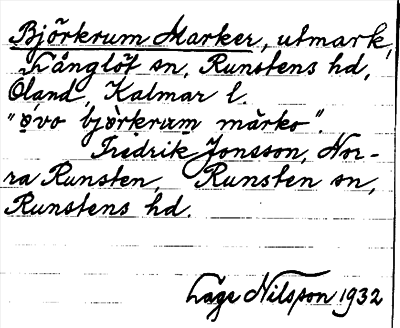 Björkrum Marker, utmark,
Långlöt sn, Runstens hd,
Öland, Kalmar l.
"övo björkrum márko".
Fredrik Jonsson, Nor-
ra Runsten, Runsten sn,
Runstens hd.
Låge Nilsson 1932